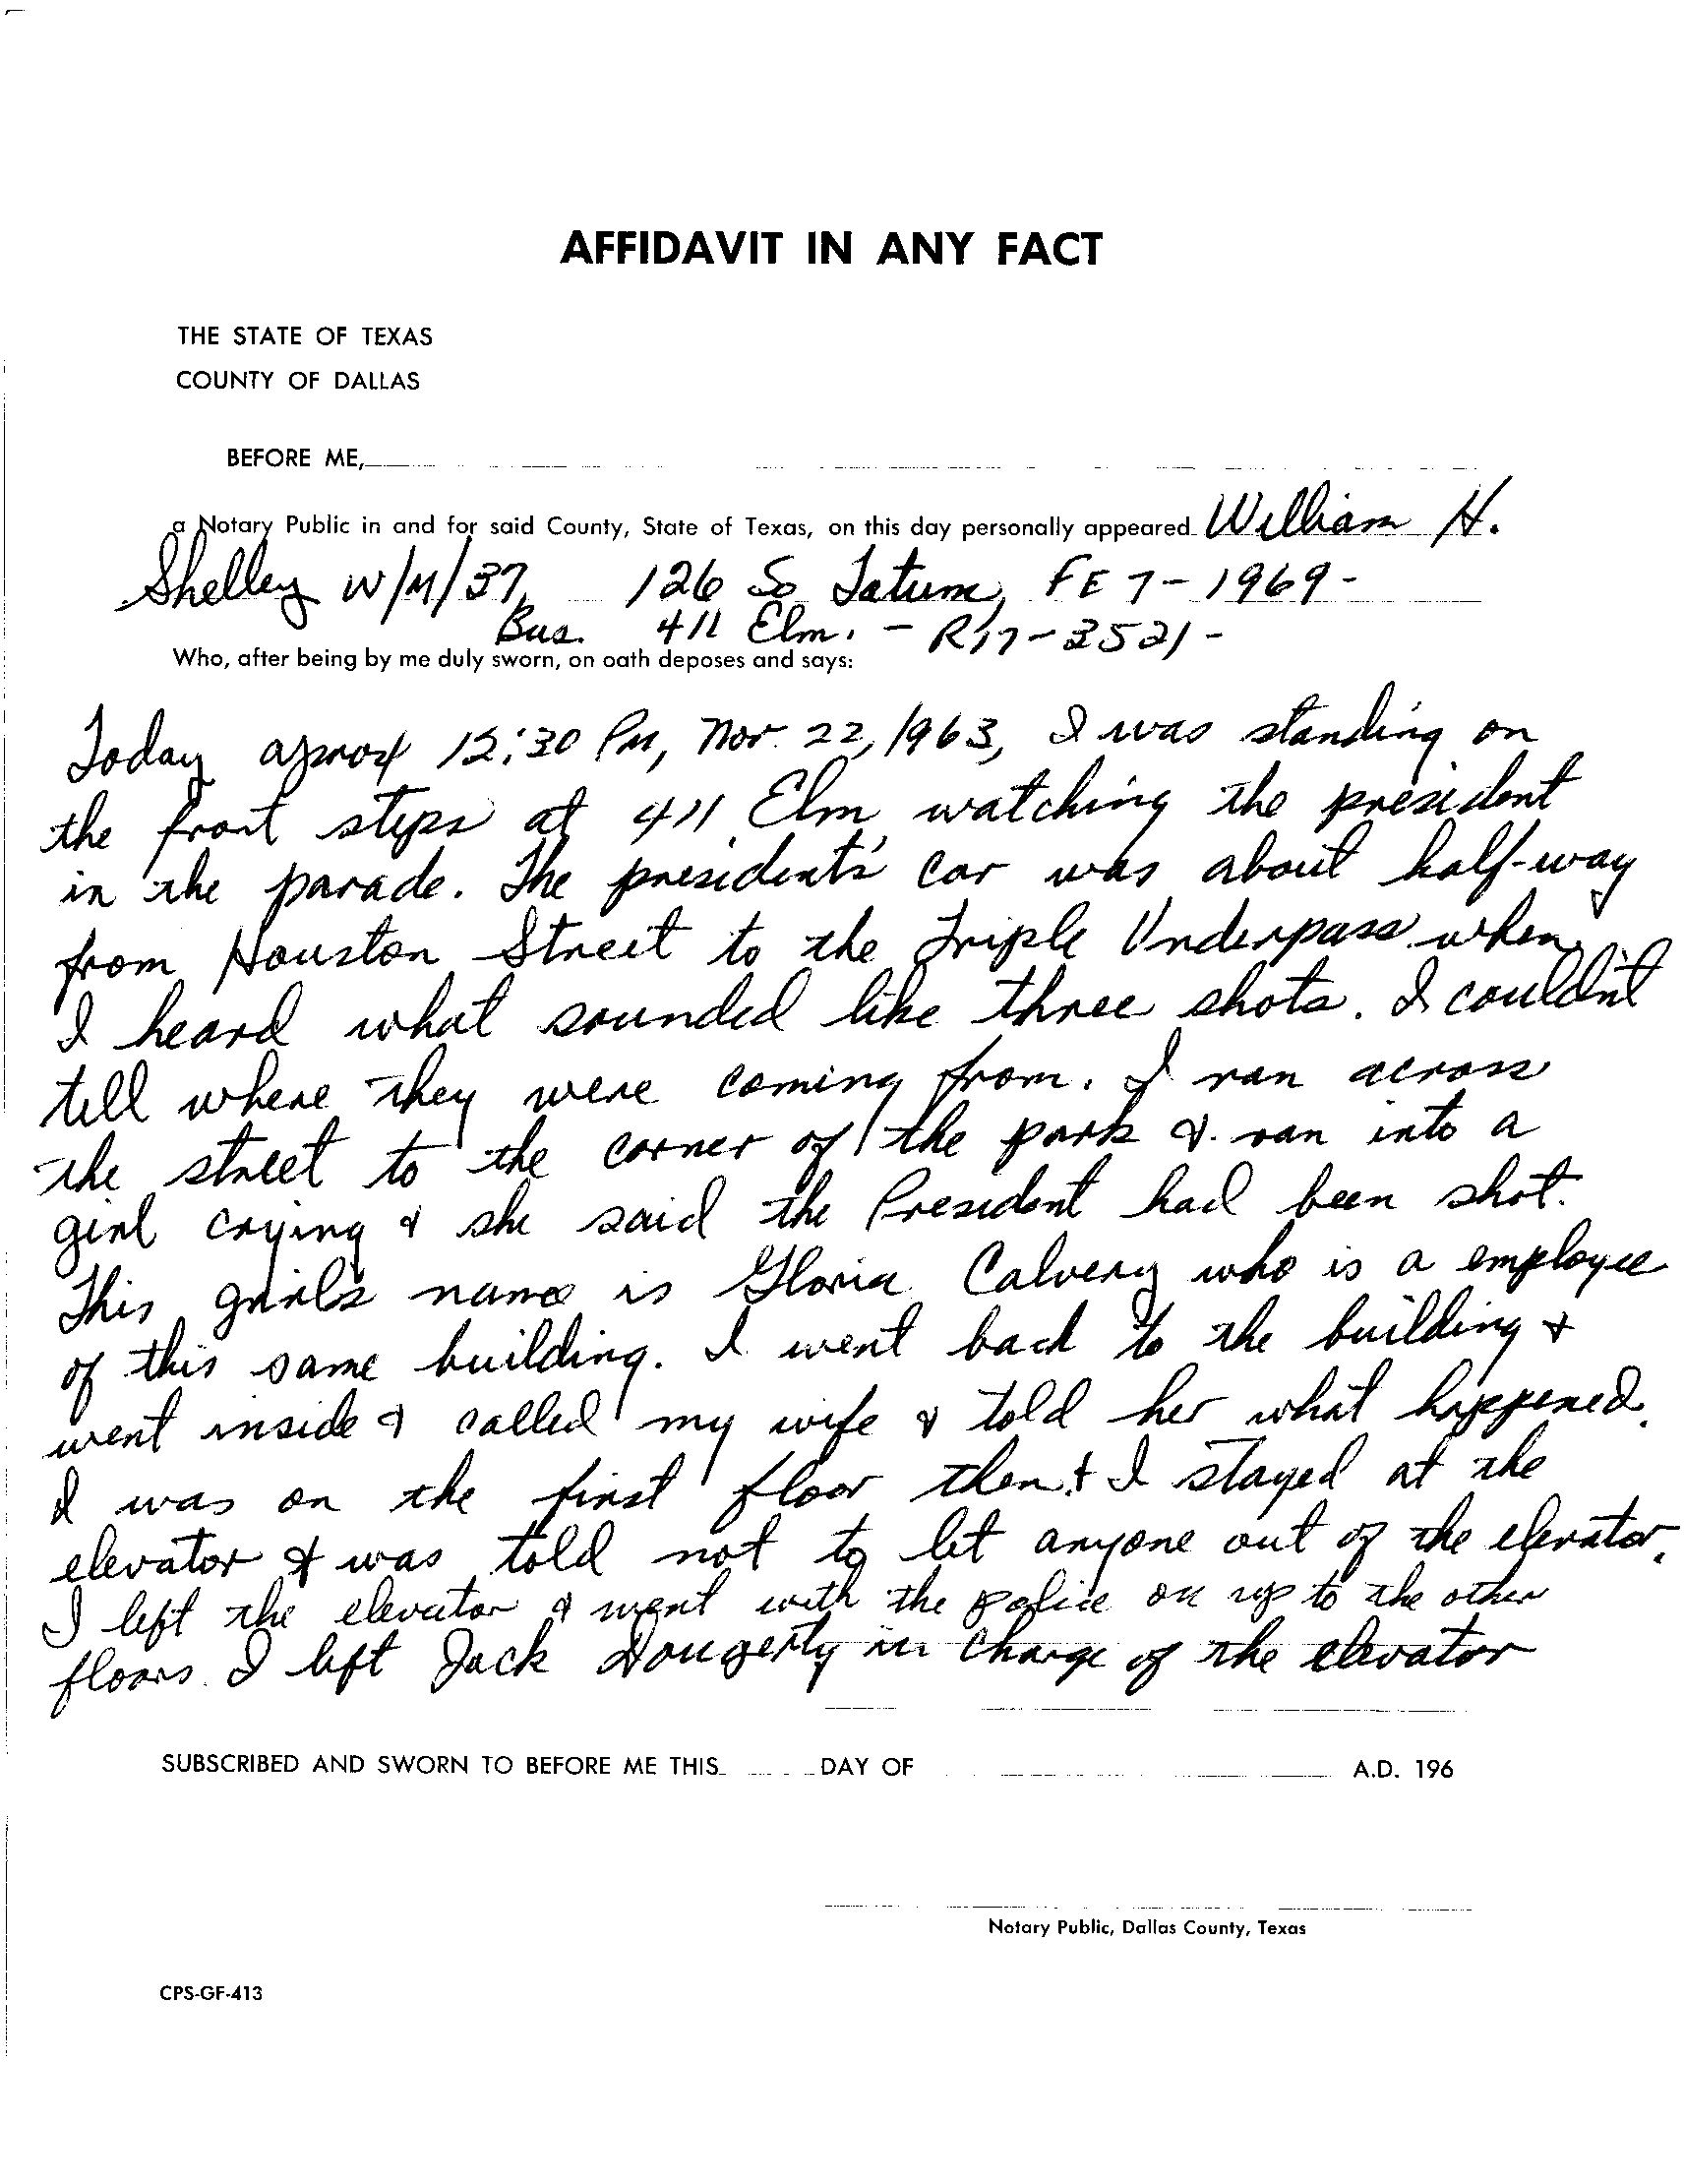 AFFIDAVIT IN ANY FACT
THE STATE OF TEXAS
COUNTY OF DALLAS
BEFORE ME,
a Notary Public in and for said County, State of Texas, on this day personally appeared William H.
Shelley W/M/37, 126 So Tatum, FE 7-1969-
Bus. 411 Elm. - RI7-3521-
Who, after being by me duly sworn, on oath deposes and says:
Today aprox 12:30 PM, Nov. 22, 1963, I was standing on
the front steps at 411 Elm watching the president
in the parade. The president's car was about half-way
from Houston Street to the Triple Underpass when
I heard what sounded like three shots. I couldn't
tell where they were coming from. I ran across
the street to the corner of the park & ran into a
girl crying & she said the President had been shot.
This girl's name is Gloria Calvery who is a employee
of this same building. I went back to the building &
went inside & called my wife & told her what happened.
I was on the first floor then & I stayed at the
elevator & was told not to let anyone out of the elevator.
I left the elevator & went with the police on up to the other
floors. I left Jack Dougerty in charge of the elevator
SUBSCRIBED AND SWORN TO BEFORE ME THIS DAY OF A.D. 196
Notary Public, Dallas County, Texas
CPS-GF-413